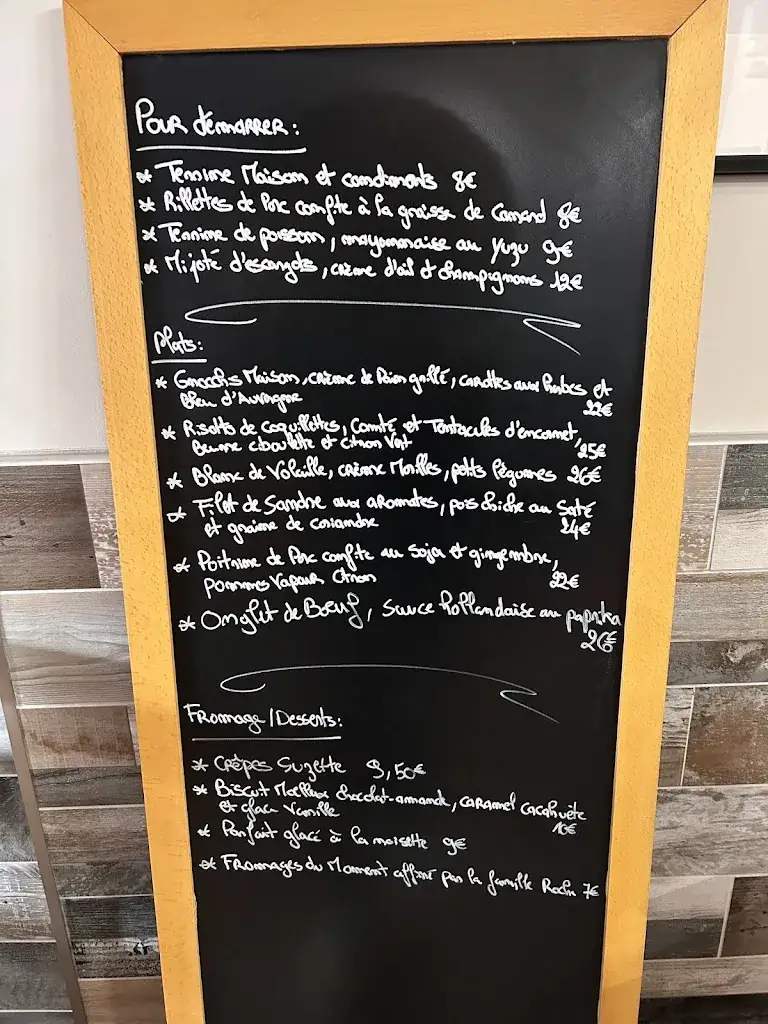 Pour démarrer :
* Terrine Maison et condiments 8€
* Rillettes de Porc confite à la graisse de Canard 8€
* Terrine de poisson, mayonnaise au Yuzu 9€
* Mijoté d'escargots, crème d'ail et champignons 12€
Plats :
* Gnocchis Maison, crème de Poivron grillé, carottes aux herbes et
Bleu d'Auvergne 22€
* Risotto de coquillettes, Comté et Tentacules d'encornet,
Beurre ciboulette et citron Vert 25€
* Blanc de Volaille, crème Morilles, petits légumes 26€
* Filet de Sandre aux aromates, pois chiche au Saté
et graine de coriandre 24€
* Poitrine de Porc confite au Soja et gingembre,
pommes Vapeur Citron 22€
* Onglet de Bœuf, sauce hollandaise au paprika
26€
Fromage/Desserts :
* Crêpes Suzette 9,50€
* Biscuit Moelleux chocolat-amande, caramel cacahuète
et glace Vanille 10€
* Parfait glacé à la noisette 9€
* Fromages du Moment affiné par la famille 7€